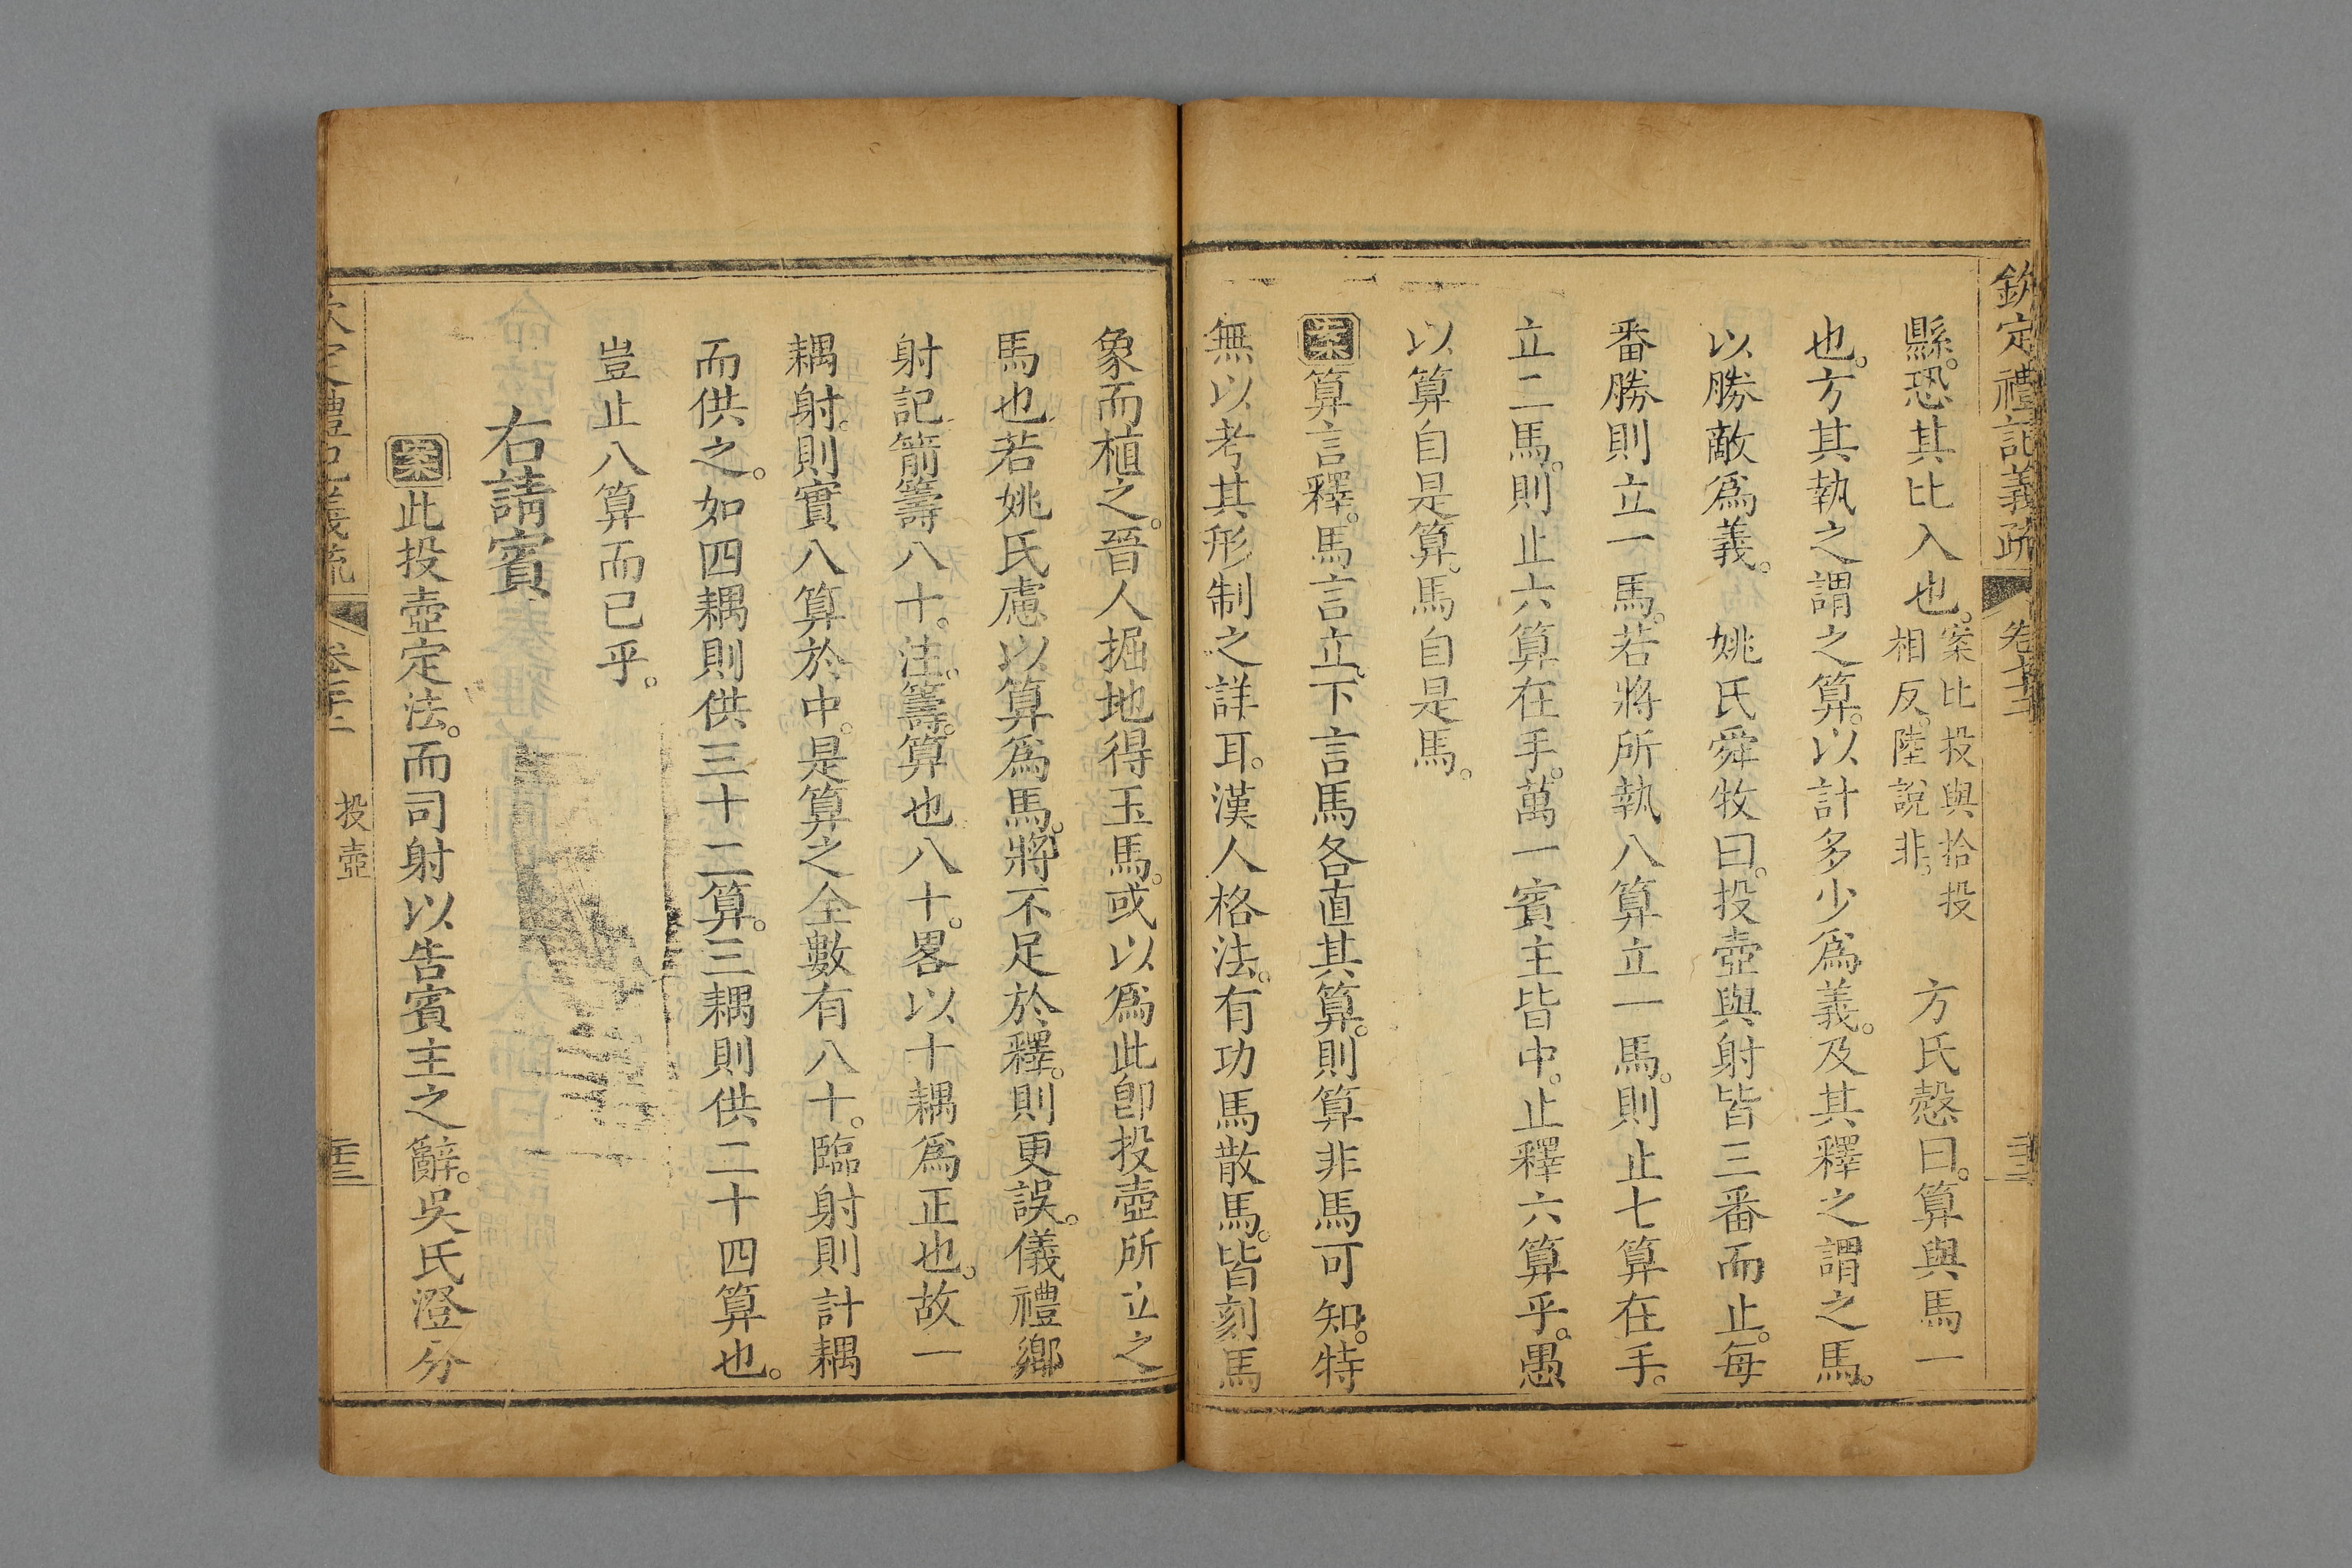 欽定禮記義疏
縣。恐其比入也。案比投與拾投相反。陸說非。　方氏慤曰。算與馬一
也。方其執之謂之算。以計多少爲義。及其釋之謂之馬。
以勝敵爲義。　姚氏舜牧曰。投壺與射皆三番而止。每
番勝則立一馬。若將所執八算立一馬。則止七算在手。
立二馬。則止六算在手。萬一賓主皆中。止釋六算乎。愚
以算自是算。馬自是馬。
案算言釋。馬言立。下言馬各直其算。則算非馬可知。特
無以考其形制之詳耳。漢人格法。有功馬散馬。皆刻馬
象而植之。晉人掘地得玉馬。或以爲此卽投壺所立之
馬也。若姚氏慮以算爲馬。將不足於釋。則更誤。儀禮鄉
射記箭籌八十。注。籌。算也八十。畧以十耦爲正也。故一
耦射。則實八算於中。是算之全數有八十。臨射則計耦
而供之。如四耦則供三十二算。三耦則供二十四算也。
豈止八算而已乎。
右請賓
案此投壺定法。而司射以告賓主之辭。吳氏澄分
投壺